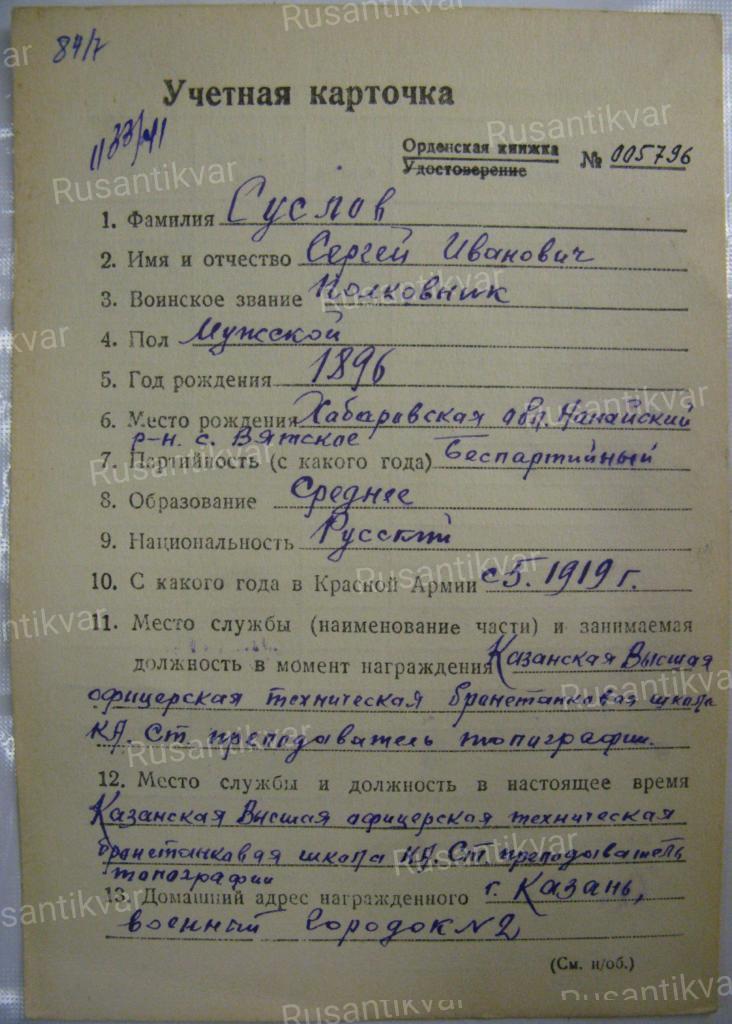 84/7
Учетная карточка
Орденская книжка
Удостоверение № 005796
1. Фамилия Суслов
2. Имя и отчество Сергей Иванович
3. Воинское звание Полковник
4. Пол Мужской
5. Год рождения 1896
6. Место рождения Хабаровская обл. Нанайский
р-н. с. Вятское
7. Партийность (с какого года) Беспартийный
8. Образование Среднее
9. Национальность Русский
10. С какого года в Красной Армии с 5. 1919 г.
11. Место службы (наименование части) и занимаемая
должность в момент награждения Казанская Высшая
офицерская техническая бронетанковая школа
КА. Ст. преподаватель топографии.
12. Место службы и должность в настоящее время
Казанская Высшая офицерская техническая
бронетанковая школа КА. Ст. преподаватель
топографии
13. Домашний адрес награжденного г. Казань,
военный городок N 2
(См. н/об.)
Rusantikvar